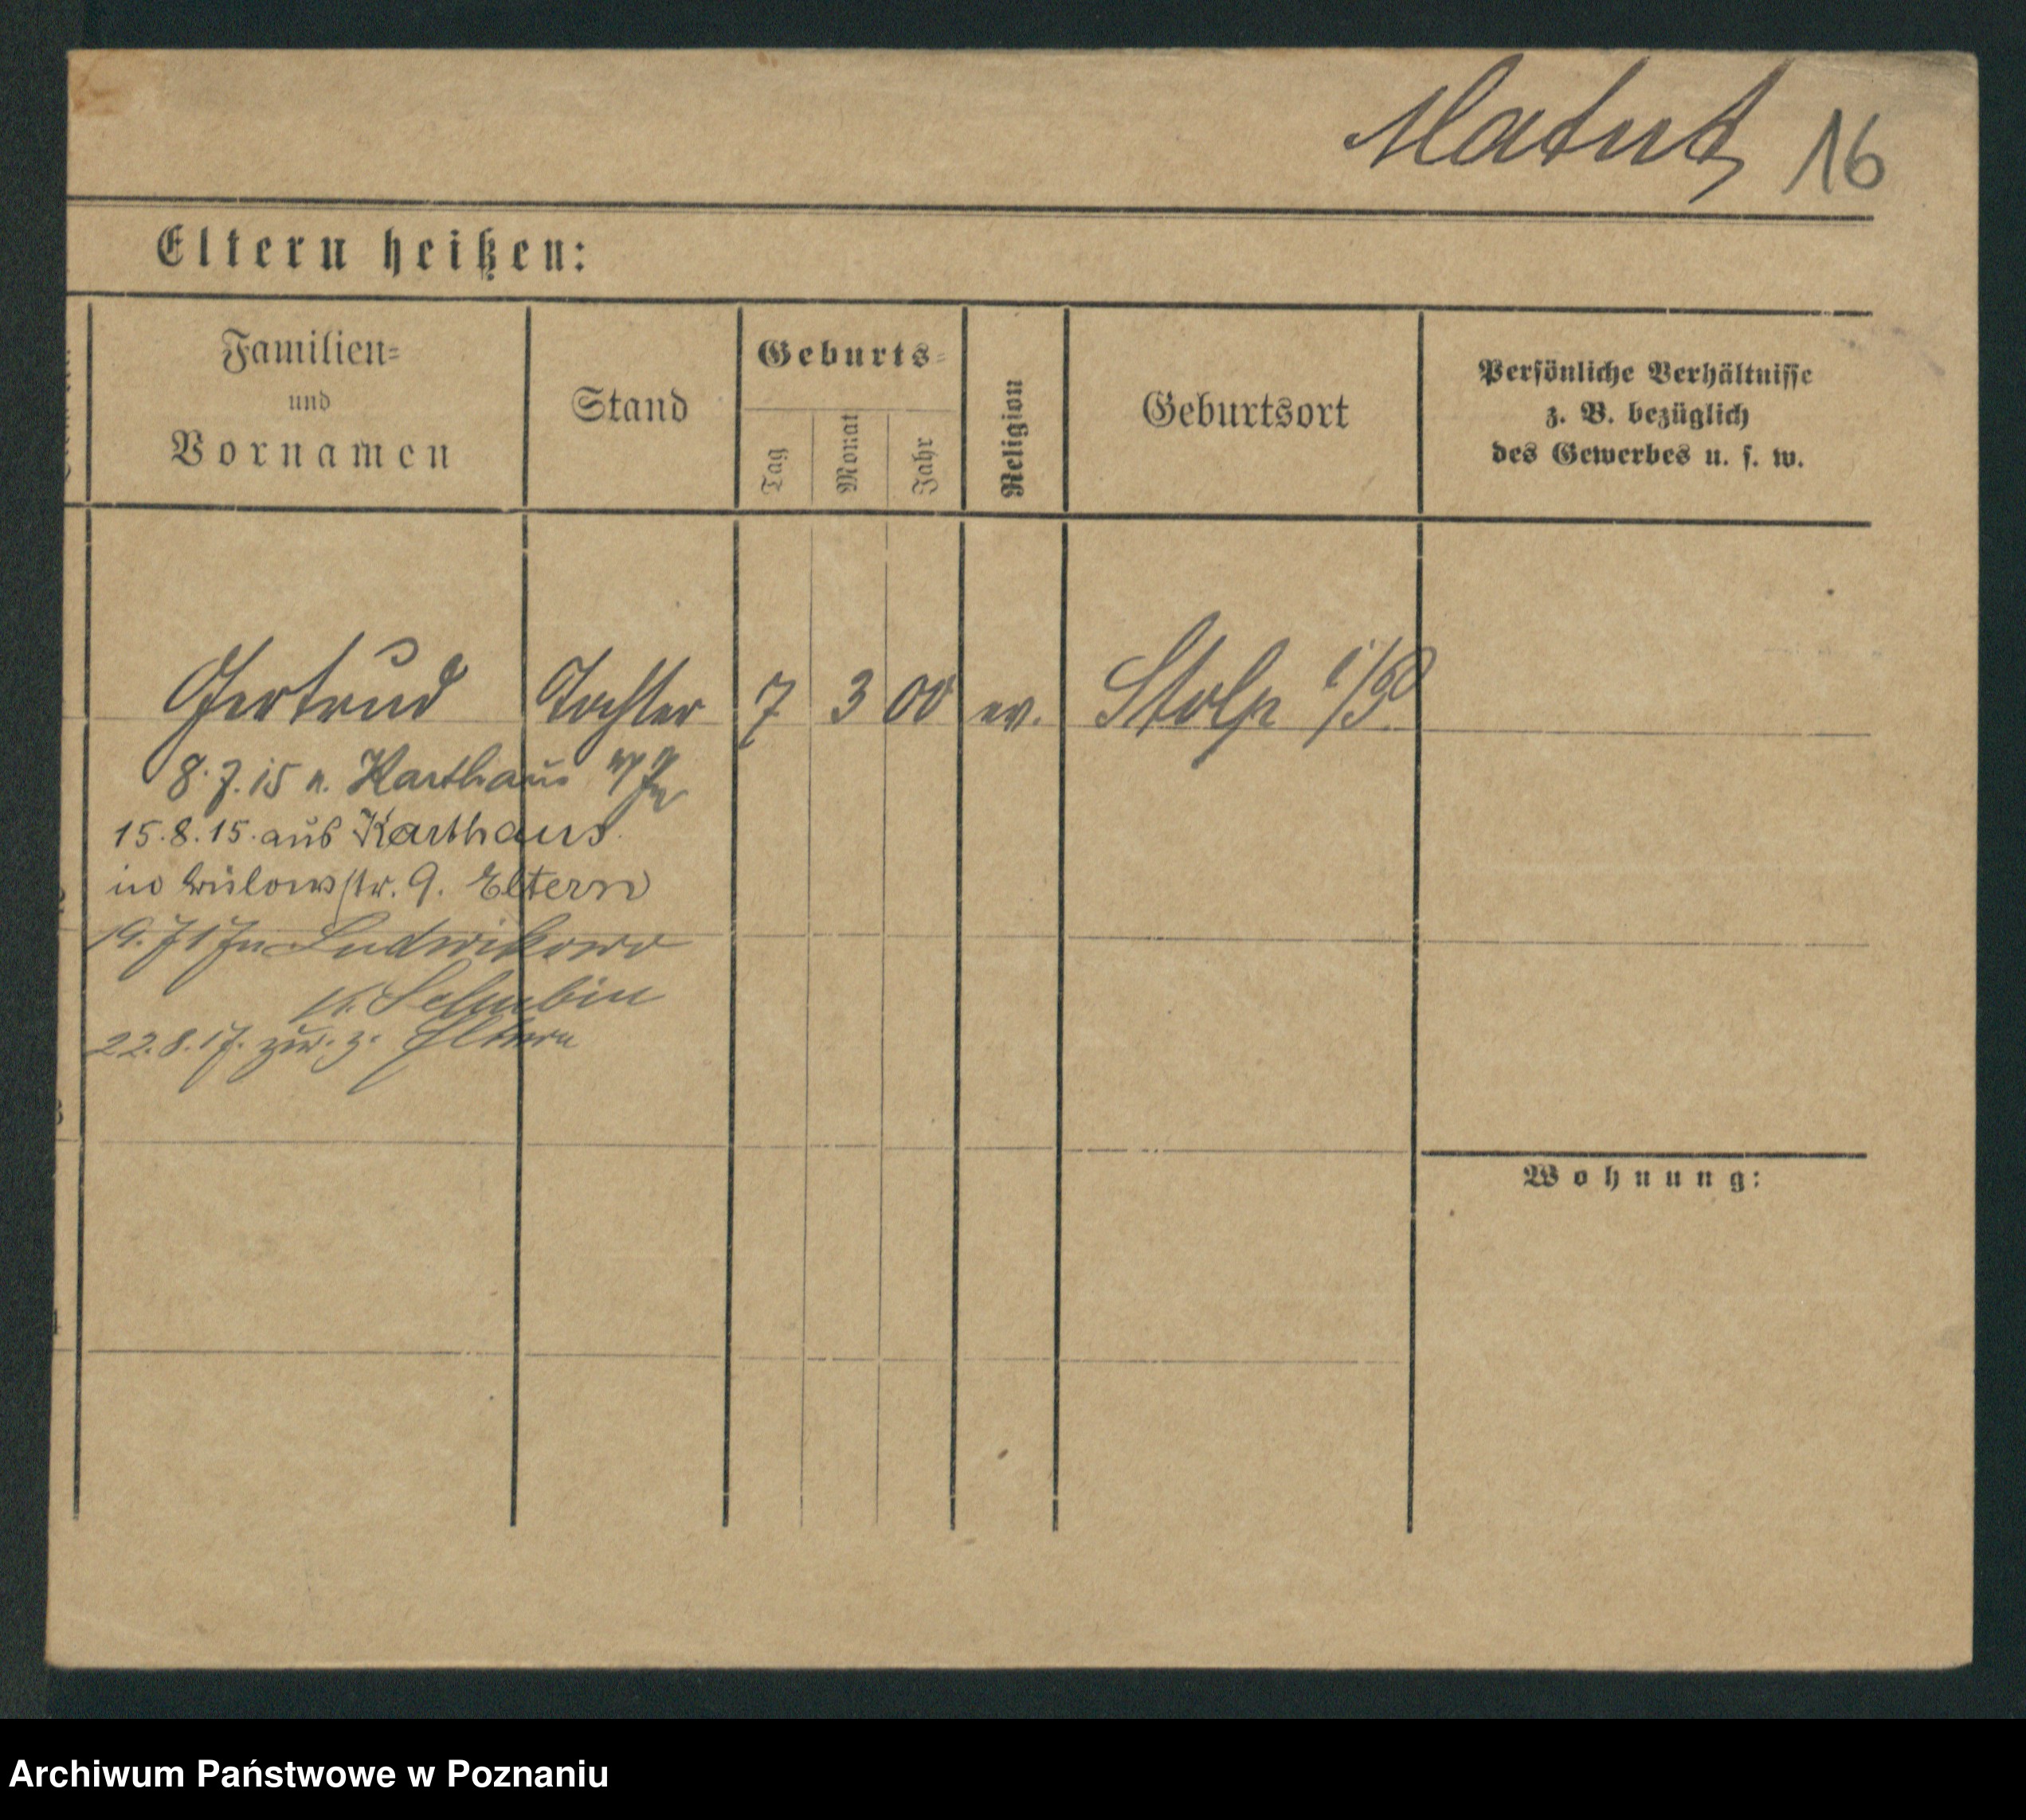 Matut 16
Eltern heißen:
Familien=
und
Vornamen
Stand
Geburts=
Tag
Monat
Jahr
Religion
Geburtsort
Persönliche Verhältnisse
z. B. bezüglich
des Gewerbes u. s. w.
Gertrud Tochter 7 3 00 ev. Stolp i/P.
8.7.15 n. Karthaus W/Pr
15.8.15. aus Karthaus.
in Bülowstr. 9. Eltern
19.7 17 n Ludwikowo
K. Schubin
22.8.17. zur. z. Eltern
Wohnung:
Archiwum Państwowe w Poznaniu